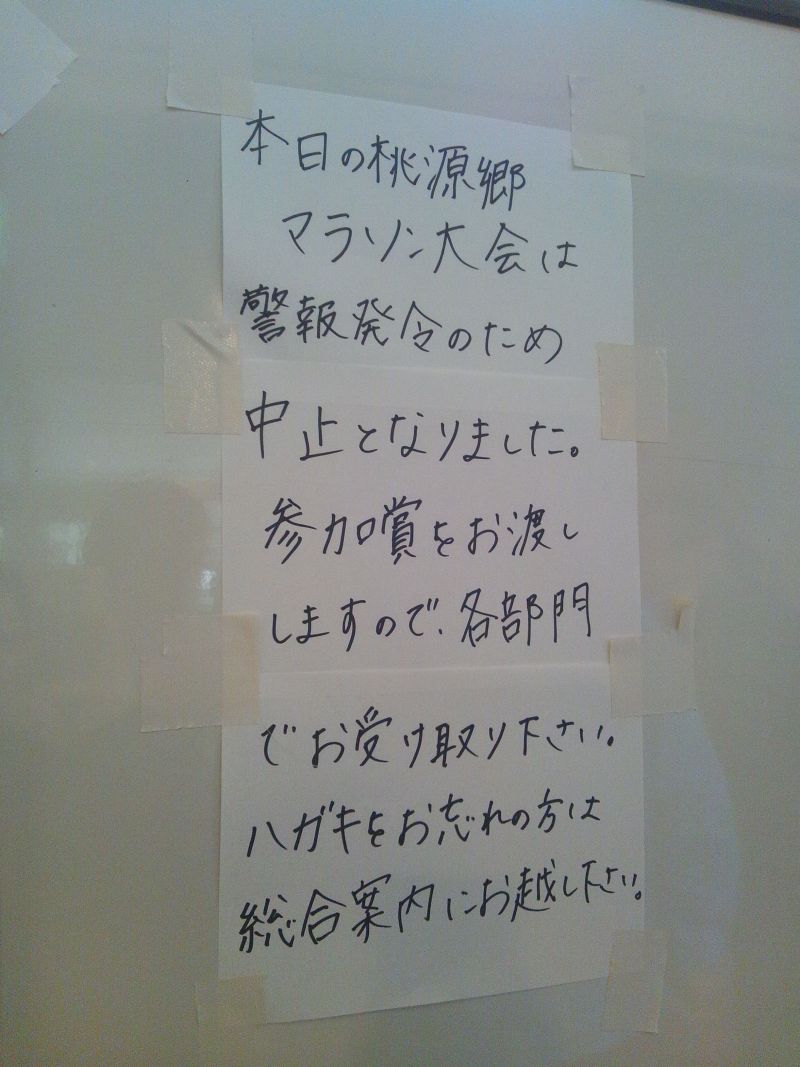 本日の桃源郷
マラソン大会は
警報発令のため
中止となりました。
参加賞をお渡し
しますので、各部門
でお受け取り下さい。
ハガキをお忘れの方は
総合案内にお越し下さい。